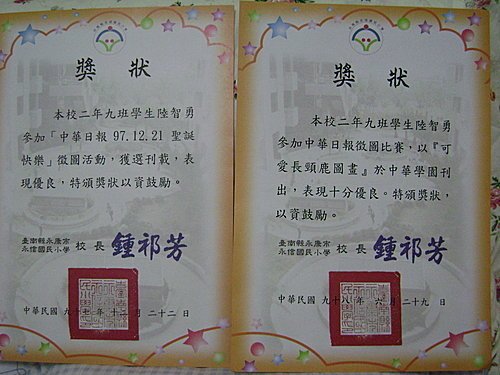 獎狀
本校二年九班學生陸智勇
參加「中華日報 97.12.21 聖誕
快樂」徵圖活動,獲選刊載,表
現優良,特頒獎狀以資鼓勵。
臺南縣永康市
永信國民小學
校長 鍾祁芳
中華民國 九十七 年 十二 月 二十二 日
獎狀
本校二年九班學生陸智勇
參加中華日報徵圖比賽,以『可
愛長頸鹿圖畫』於中華學園刊
出,表現十分優良。特頒獎狀,
以資鼓勵。
臺南縣永康市
永信國民小學
校長 鍾祁芳
中華民國 九十八 年 六 月 二十九 日